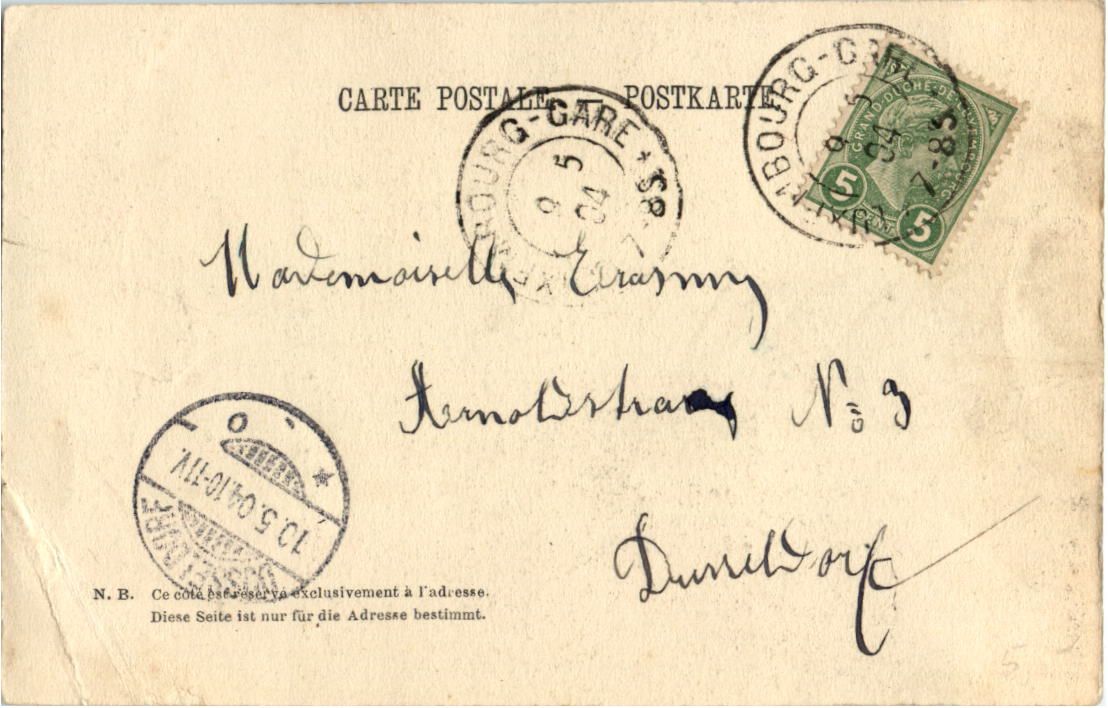 CARTE POSTALE — POSTKARTE
GRAND-DUCHÉ-DE-LUXEMBOURG
5 CENT. 5
XEMBOURG-GARE
9 5
04
7-8S
LUXEMBOURG-GARE
9 5
04
7-8S
Mademoiselle Erasmy
Arnoldstrasse No 3
Dusseldorf
DÜSSELDORF
10.5.04.10-11V.
N. B. Ce côté est réservé exclusivement à l'adresse.
Diese Seite ist nur für die Adresse bestimmt.
5